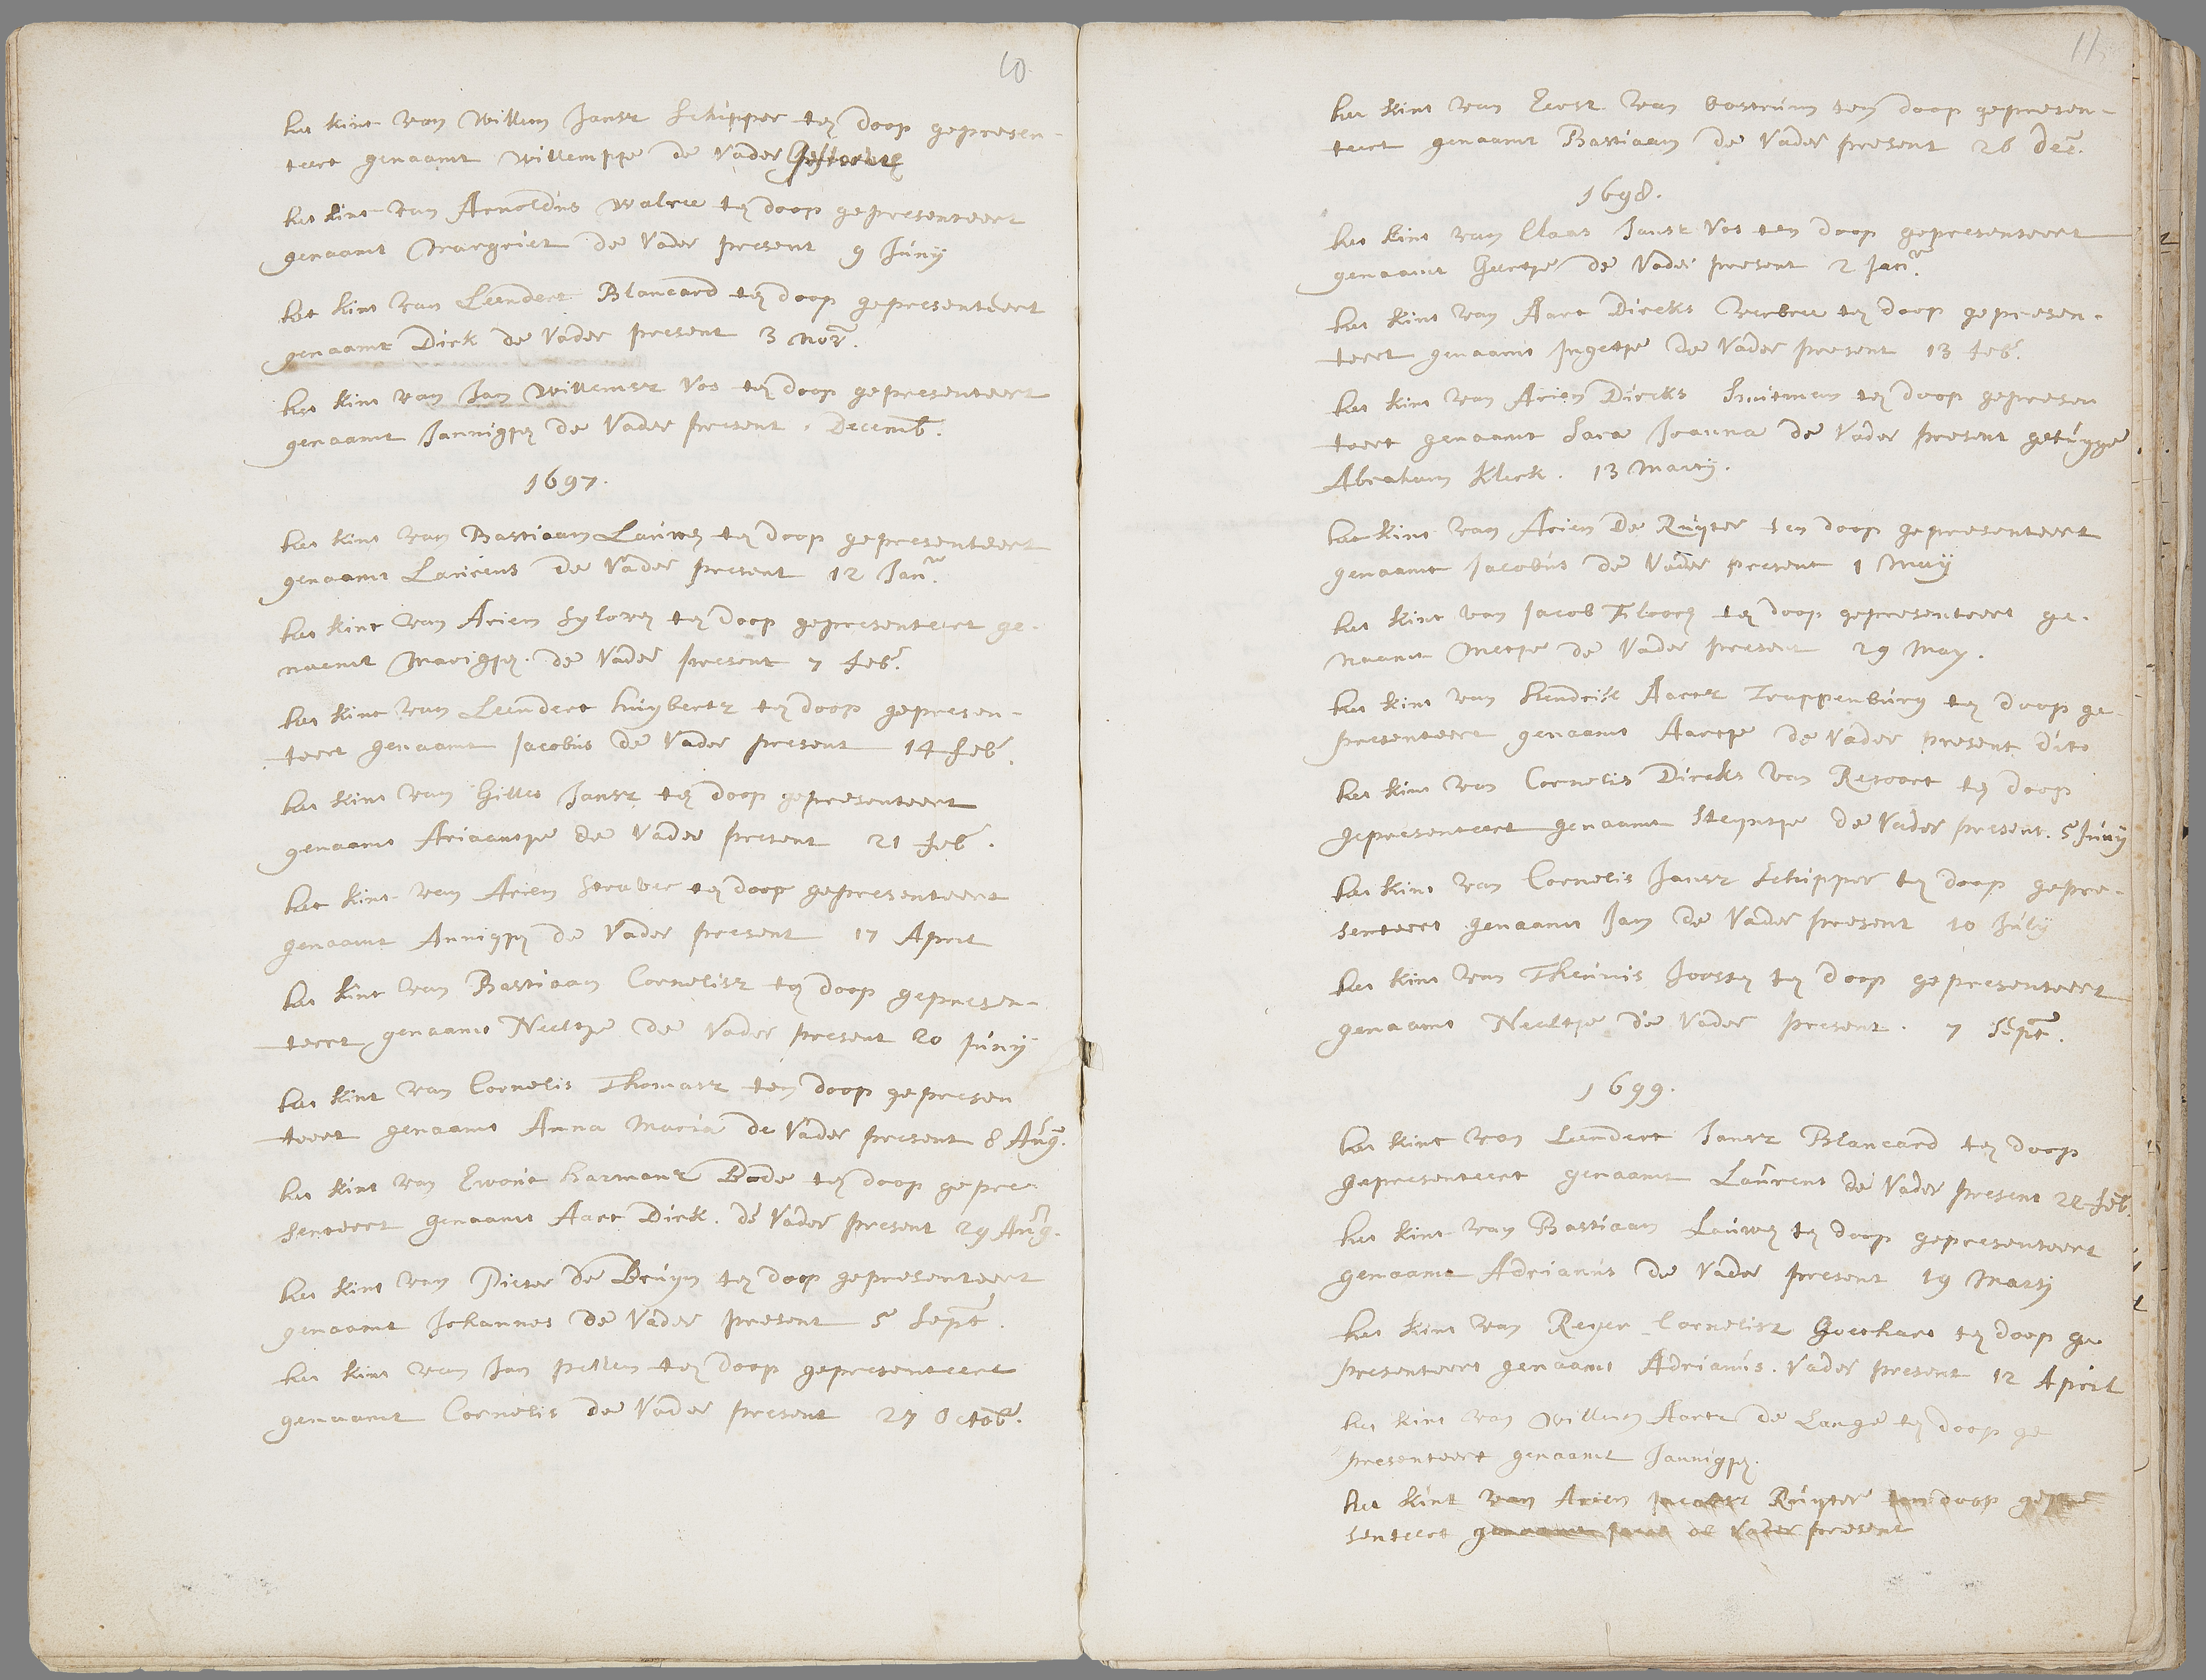 10
het kint van Willem Jansz Schipper ten doop gepresen-
teert genaamt Willemppe de Vader Gestorben
het kint van Arnoldus Walree ten doop gepresenteert
genaamt Margriet de Vader present 9 Juny
het kint van Leendert Blancard ten doop gepresenteert
genaamt Dirk de Vader present 3 Nov.
het kint van Jan Willemsz Vos ten doop gepresenteert
genaamt Jannigjen de Vader present . Decemb.
1697.
het kint van Bastiaan Lauwen ten doop gepresenteert
genaamt Laurens de Vader present 12 Jan.
het kint van Arien Syloren ten doop gepresenteert ge-
naemt Marigjen. de Vader present 7 feb.
het kint van Leendert huybertz ten doop gepresen-
teert genaamt Jacobus de Vader present 14 feb.
het kint van Gilles Jansz ten doop gepresenteert
genaamt Ariaentje de Vader present 21 feb.
het kint van Arien Straver ten doop gepresenteert
genaamt Annigjen de Vader present 17 April
het kint van Bastiaan Cornelisz ten doop gepresen-
teert genaamt Neeltje de Vader present 20 Juny
het kint van Cornelis Thomasz ten doop gepresen
teert genaamt Anna Maria de Vader present 8 Aug.
het kint van Ewout harmansz Bode ten doop gepre-
senteert genaamt Aart Dirk. de Vader present 29 Aug.
het kint van Pieter de Bruyn ten doop gepresenteert
genaamt Johannes de Vader present 5 Sept.
het kint van Jan pellen ten doop gepresenteert
genaamt Cornelis de Vader present 27 Octob.
11
het kint van Evert van Oostrum ten doop gepresen-
teert genaamt Bastiaan de Vader present 26 Dec.
1698.
het kint van Claas Jansz Vos ten doop gepresenteert
genaamt Geertje de Vader present 2 Jan.
het kint van Aart Dircks Verbree ten doop gepresen-
teert genaamt Ingetje de Vader present 13 feb.
het kint van Arien Dircks Snueman ten doop gepresen
teert genaamt Sara Joanna de Vader present getuyge
Abraham Klerk. 13 Marty.
het kint van Arien de Ruyter ten doop gepresenteert
genaamt Jacobus de Vader present 1 Mey
het kint van Jacob Floren ten doop gepresenteert ge-
naamt Metje de Vader present 29 May.
het kint van hendrik Aartz Trappenburg ten doop ge-
presenteert genaamt Aartje de Vader present dito
het kint van Cornelis Dircks van Resoort ten doop
gepresenteert genaamt Steyntje de Vader present. 5 Juny
het kint van Cornelis Jansz Schipper ten doop gepre-
senteert genaamt Jan de Vader present 10 July
het kint van Theunis Joosten ten doop gepresenteert
genaamt Neeltje de Vader present. 7 Sept.
1699.
het kint van Leendert Jansz Blancard ten doop
gepresenteert genaamt Laurens de Vader present 22 feb.
het kint van Bastiaan Lauwen ten doop gepresenteert
genaamt Adrianus de Vader present 19 Marty
het kint van Reyer Cornelisz Goethart ten doop ge
presenteert genaamt Adrianus. Vader present 12 April
het kint van Willem Aartz de Lange ten doop ge
presenteert genaamt Jannigjen.
het kint van Arien Jacobsz Ruyter ten doop gepre
senteert genaamt Jacob de Vader present